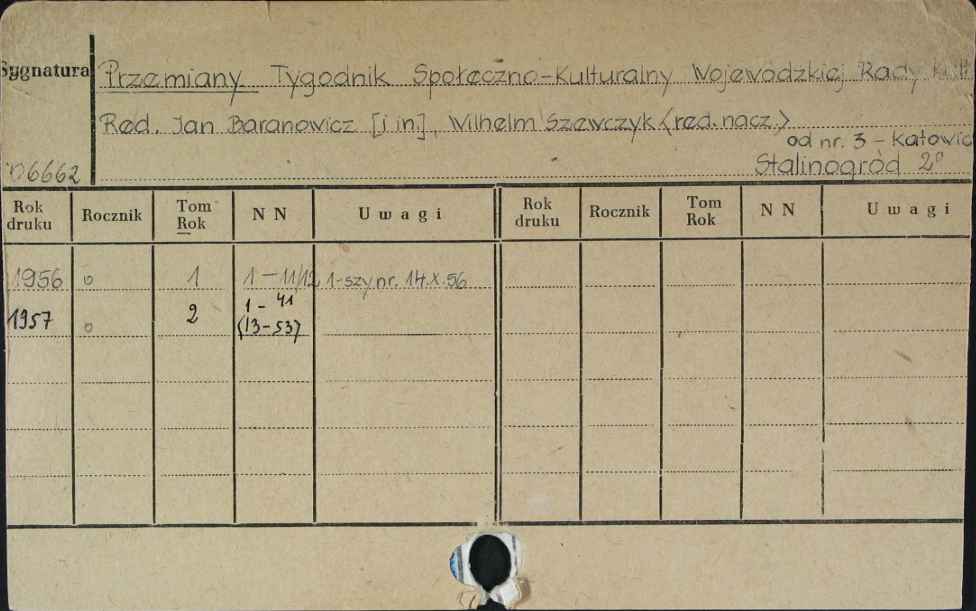 Sygnatura
Przemiany Tygodnik Społeczno-Kulturalny Wojewódzkiej Rady Kult.
Red. Jan Baranowicz [i in.], Wilhelm Szewczyk <red. nacz.>
od nr. 3 - Katowic
06662 Stalinogród 2°
Rok druku Rocznik Tom Rok N N Uwagi Rok druku Rocznik Tom Rok N N Uwagi
1956 o 1 1-11/12 1-szy nr. 14.X.56
1957 o 2 1-41
(13-53)